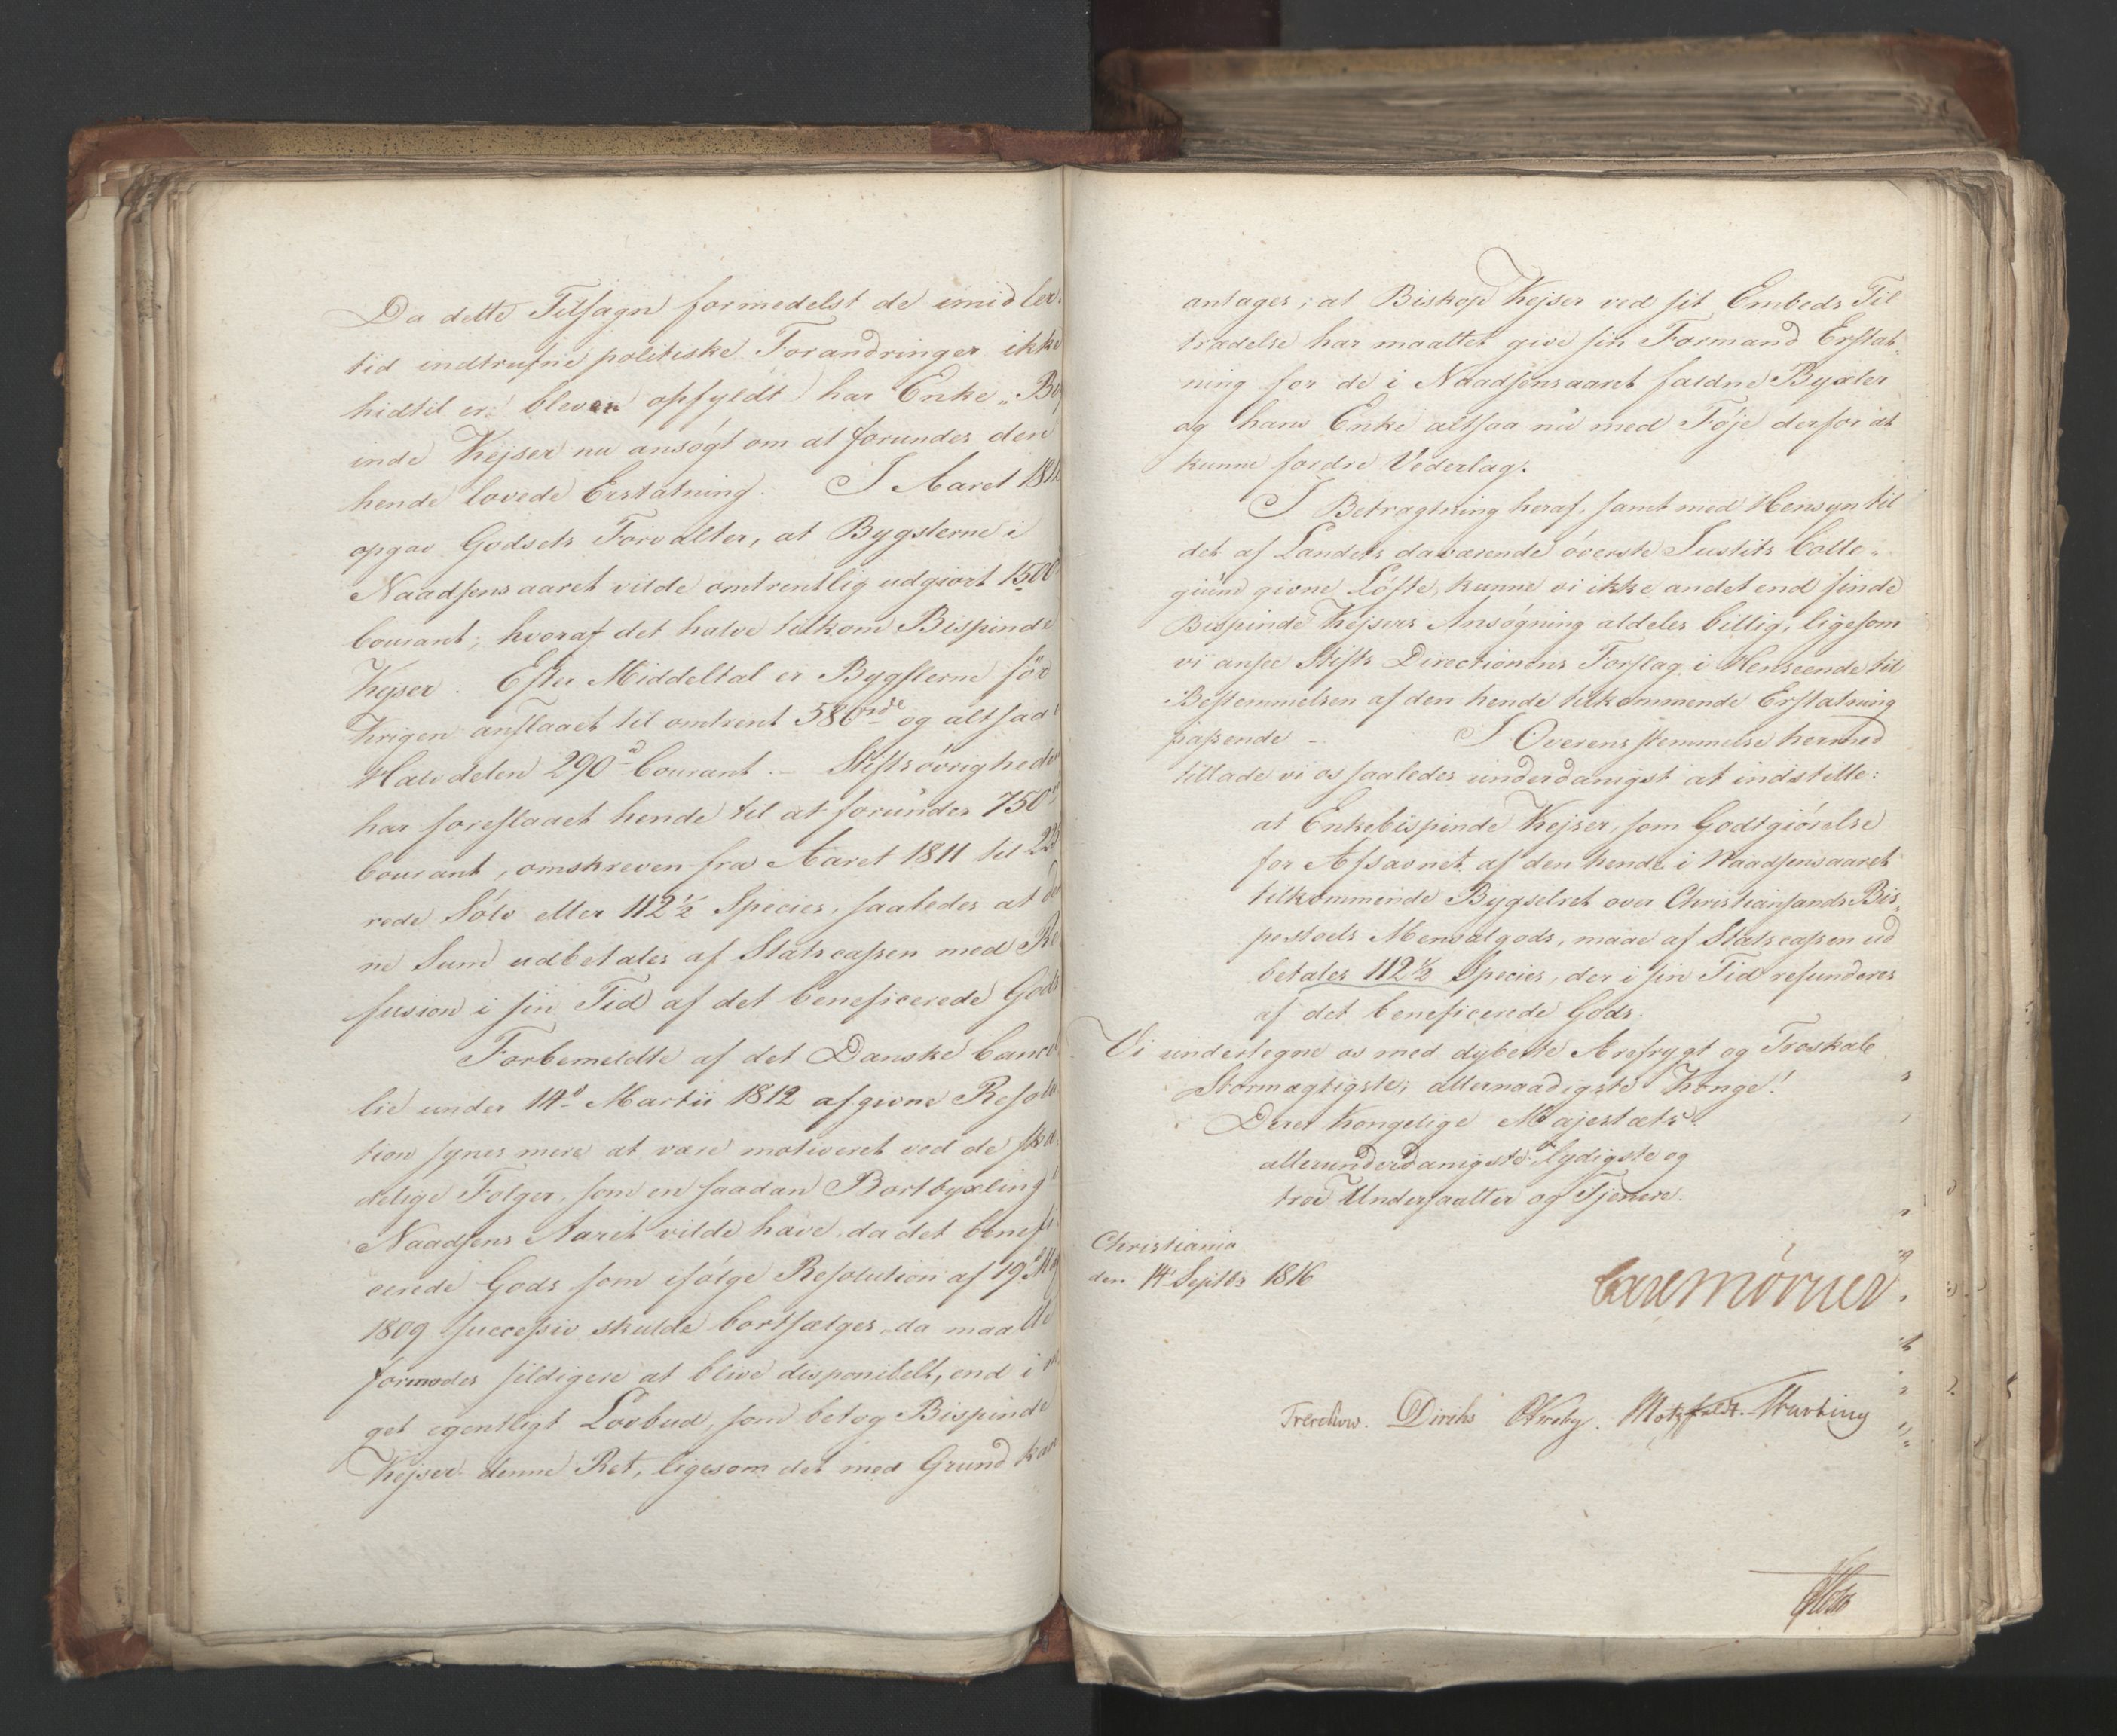 Da dette Tilsagn formedelst de imidler
tid indtrufne politiske Forandringer ikke
hidtil er bleven opfyldt har Enke„
inde Kejser nu ansøgt om at forundes den
hende lovede Erstatning. I Aaret
opgav Godsets Forvalter, at Bygslerne i
Naadsensaaret vilde omtrentlig udgiort 1500
Courant, hvoraf det halve tilkom Bispinde
Kejser. Efter Middeltal er Bygslerne før
Krigen anslaaet til omtrent 580 rdr og altsaa
Halvdelen 290 d Courant. – Stiftsøvrigheden
har foreslaaet hende til at forundes 750
Courant, omskreven fra Aaret 1811 til
rede Sølv eller 112½ Species, saaledes at den
ne Sum udbetales af Statscassen med Re
fusion i sin Tid af det beneficerede Gods
Forbemeldte af det Danske Cancel
lie under 14d Martii 1812 afgivne Resolu
tion synes mere at være motiveret ved de ska
delige Følger, som en saadan Bortbyxling i
Naadsens Aaret vilde have, da det benefi
cerede Gods som ifølge Resolution af 19d
1809 successiv skulde bortsælges, da maatte
formodes sildigere at blive disponibelt, end i no
get egentligt Lovbud, som betog Bispinde
Kejser denne Ret, ligesom det med Grund kan
antages, at Biskop Kejser ved sit Embeds Til
trædelse har maattet give sin Formand Erstat„
ning for de i Naadsensaaret faldne Byxler
og hans Enke altsaa nu med Føje derfor at
kunne fordre Vederlag.
I Betragtning heraf, samt med Hensyn til
det af Landets daværende øverste Justits Colle„
gium givne Løfte, kunne vi ikke andet end finde
Bispinde Kejsers Ansøgning aldeles billig, ligesom
vi ansee Stifts Directionens Forslag i Henseende til
Bestemmelsen af den hende tilkommende Erstatning
passende – I Overensstemmelse hermed
tillade vi os saaledes underdanigst at indstille:
at Enkebispinde Kejser, som Godtgiørelse
for Afsavnet af den hende i Naadsensaaret
tilkommende Bygselret over Christiansands Bis„
pestoels Mensalgods, maae af Statscassen ud
betales 112½ Species, der i sin Tid refunderes
af det beneficerede Gods.
Vi undertegne os med dybeste Ærefrygt og Troskab
Stormægtigste, allernaadigste Konge!
Deres Kongelige Majestæts
allerunderdanigste, lydigste og
troe Undersaatter og Tjenere.
Christiania
den 14 Septbr 1816
Carl Mörner
Treschow. Diriks Krebs. Motzfeldt.